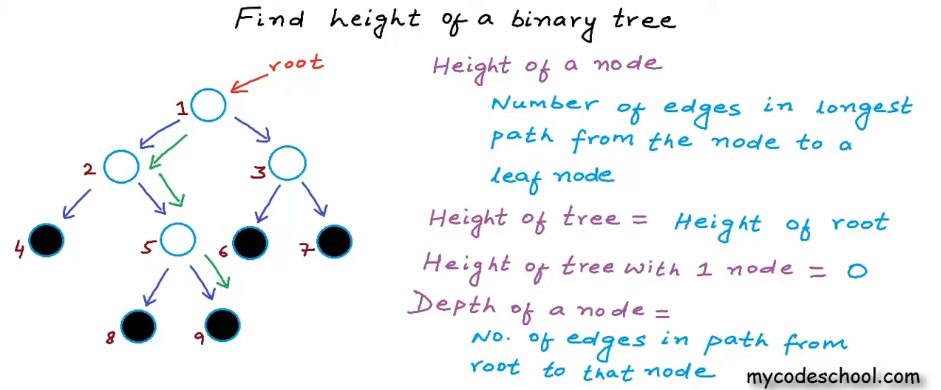 Find height of a binary tree
root
1
2
3
4
5
6
7
8
9
Height of a node
Number of edges in longest
path from the node to a
leaf node
Height of tree = Height of root
Height of tree with 1 node = 0
Depth of a node =
No. of edges in path from
root to that node
mycodeschool.com